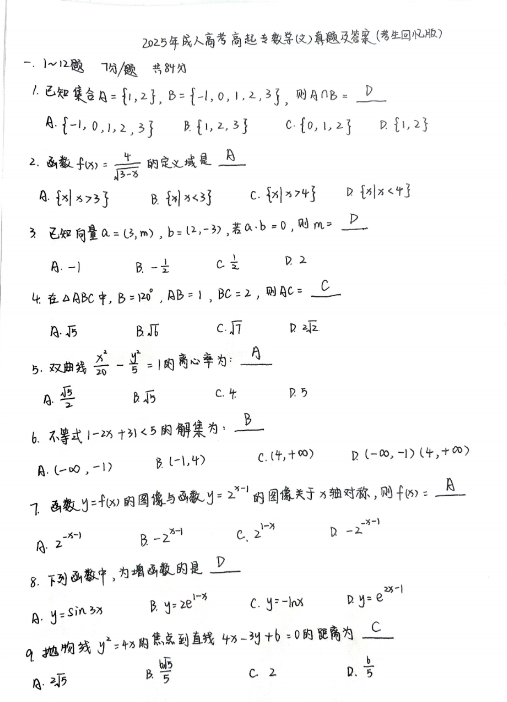 2025年成人高考高起专数学(文)真题及答案(考生回忆版)
一. 1~12题 7分/题 共84分
1. 已知集合A={1,2}, B={-1,0,1,2,3}, 则A∩B= D
A. {-1,0,1,2,3} B. {1,2,3} C. {0,1,2} D. {1,2}
2. 函数 f(x)= 4/√(3-x) 的定义域是 A
A. {x|x>3} B. {x|x<3} C. {x|x>4} D {x|x<4}
3. 已知向量a=(3,m), b=(2,-3), 若a·b=0, 则m= D
A. -1 B. -1/2 C. 1/2 D. 2
4. 在△ABC中, B=120°, AB=1, BC=2, 则AC= C
A. √5 B. √6 C. √7 D 2√2
5. 双曲线 x²/20 - y²/5 =1的离心率为: A
A. √5/2 B. √5 C. 4 D. 5
6. 不等式|-2x+3|<5的解集为: B
A. (-∞,-1) B. (-1,4) C. (4,+∞) D. (-∞,-1)(4,+∞)
7. 函数y=f(x)的图像与函数y=2^(x-1)的图像关于x轴对称, 则f(x)= A
A. 2^(-x-1) B. -2^(x-1) C. 2^(1-x) D -2^(-x-1)
8. 下列函数中, 为增函数的是 D
A. y=sin3x B. y=2e^(1-x) C. y=-lnx D. y=e^(2x-1)
9. 抛物线 y²=4x的焦点到直线 4x-3y+6=0的距离为 C
A. 2√5 B. 6√5/5 C. 2 D. 6/5